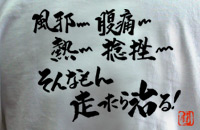 風邪… 腹痛…
熱… 捻挫…
そんなもん
走ったら治る!